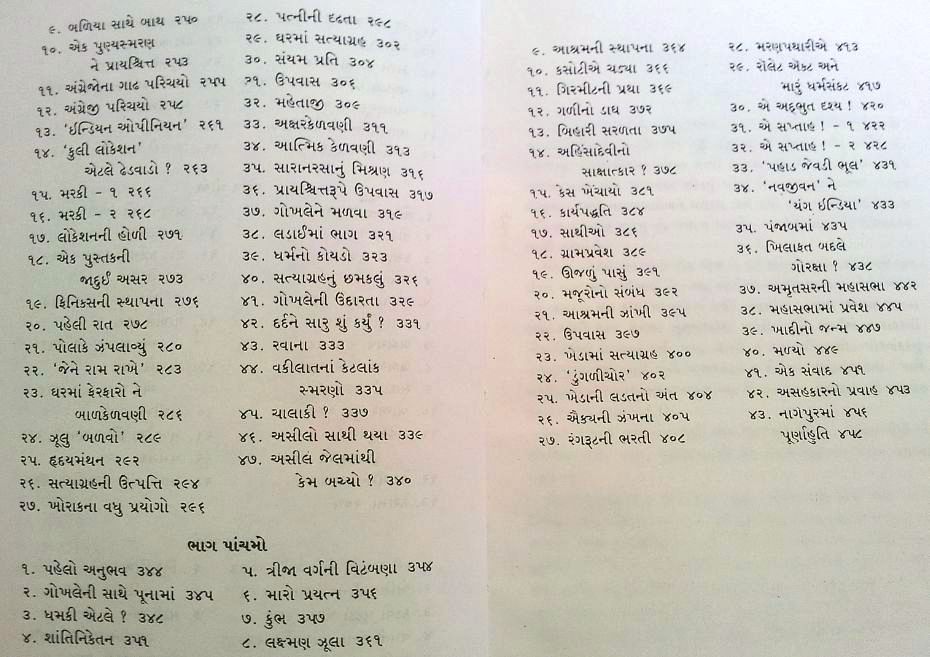 ૯. બળિયા સાથે બાથ ૨૫૦
૧૦. એક પુણ્યસ્મરણ
ને પ્રાયશ્ચિત્ત ૨૫૩
૧૧. અંગ્રેજોના ગાઢ પરિચયો ૨૫૫
૧૨. અંગ્રેજી પરિચયો ૨૫૮
૧૩. ‘ઈન્ડિયન ઓપીનિયન’ ૨૬૧
૧૪. ‘કુલી લોકેશન’
એટલે ઢેડવાડો ? ૨૬૩
૧૫. મરકી - ૧ ૨૬૬
૧૬. મરકી - ૨ ૨૬૮
૧૭. લોકેશનની હોળી ૨૭૧
૧૮. એક પુસ્તકની
જાદુઈ અસર ૨૭૩
૧૯. ફિનિક્સની સ્થાપના ૨૭૬
૨૦. પહેલી રાત ૨૭૮
૨૧. પોલાકે ઝંપલાવ્યું ૨૮૦
૨૨. ‘જેને રામ રાખે’ ૨૮૩
૨૩. ઘરમાં ફેરફારો ને
બાળકેળવણી ૨૮૬
૨૪. ઝૂલુ ‘બળવો’ ૨૮૯
૨૫. હૃદયમંથન ૨૯૨
૨૬. સત્યાગ્રહની ઉત્પત્તિ ૨૯૪
૨૭. ખોરાકના વધુ પ્રયોગો ૨૯૬
૨૮. પત્નીની દૃઢતા ૨૯૮
૨૯. ઘરમાં સત્યાગ્રહ ૩૦૨
૩૦. સંયમ પ્રતિ ૩૦૪
૩૧. ઉપવાસ ૩૦૬
૩૨. મહેતાજી ૩૦૯
૩૩. અક્ષરકેળવણી ૩૧૧
૩૪. આત્મિક કેળવણી ૩૧૩
૩૫. સારાનરસાનું મિશ્રણ ૩૧૬
૩૬. પ્રાયશ્ચિત્તરૂપે ઉપવાસ ૩૧૭
૩૭. ગોખલેને મળવા ૩૧૯
૩૮. લડાઈમાં ભાગ ૩૨૧
૩૯. ધર્મનો કોયડો ૩૨૩
૪૦. સત્યાગ્રહનું છમકલું ૩૨૬
૪૧. ગોખલેની ઉદારતા ૩૨૯
૪૨. દર્દને સારુ શું કર્યું ? ૩૩૧
૪૩. રવાના ૩૩૩
૪૪. વકીલાતનાં કેટલાંક
સ્મરણો ૩૩૫
૪૫. ચાલાકી ? ૩૩૭
૪૬. અસીલો સાથી થયા ૩૩૯
૪૭. અસીલ જેલમાંથી
કેમ બચ્યો ? ૩૪૦
ભાગ પાંચમો
૧. પહેલો અનુભવ ૩૪૪
૨. ગોખલેની સાથે પૂનામાં ૩૪૫
૩. ધમકી એટલે ? ૩૪૮
૪. શાંતિનિકેતન ૩૫૧
૫. ત્રીજા વર્ગની વિટંબણા ૩૫૪
૬. મારો પ્રયત્ન ૩૫૬
૭. કુંભ ૩૫૭
૮. લક્ષ્મણ ઝૂલા ૩૬૧
૯. આશ્રમની સ્થાપના ૩૬૪
૧૦. કસોટીએ ચડ્યા ૩૬૬
૧૧. ગિરમીટની પ્રથા ૩૬૯
૧૨. ગળીનો ડાઘ ૩૭૨
૧૩. બિહારી સરળતા ૩૭૫
૧૪. અહિંસાદેવીનો
સાક્ષાત્કાર ? ૩૭૮
૧૫. કેસ ખેંચાયો ૩૮૧
૧૬. કાર્યપદ્ધતિ ૩૮૪
૧૭. સાથીઓ ૩૮૬
૧૮. ગ્રામપ્રવેશ ૩૮૯
૧૯. ઊજળું પાસું ૩૯૧
૨૦. મજૂરોનો સંબંધ ૩૯૨
૨૧. આશ્રમની ઝાંખી ૩૯૫
૨૨. ઉપવાસ ૩૯૭
૨૩. ખેડામાં સત્યાગ્રહ ૪૦૦
૨૪. ‘ડુંગળીચોર’ ૪૦૨
૨૫. ખેડાની લડતનો અંત ૪૦૪
૨૬. ઐક્યની ઝંખના ૪૦૫
૨૭. રંગરૂટની ભરતી ૪૦૮
૨૮. મરણપથારીએ ૪૧૩
૨૯. રૉલેટ ઍક્ટ અને
મારું ધર્મસંકટ ૪૧૭
૩૦. એ અદ્ભુત દૃશ્ય ! ૪૨૦
૩૧. એ સપ્તાહ ! - ૧ ૪૨૨
૩૨. એ સપ્તાહ ! - ૨ ૪૨૮
૩૩. ‘પહાડ જેવડી ભૂલ’ ૪૩૧
૩૪. ‘નવજીવન’ ને
‘યંગ ઈન્ડિયા’ ૪૩૩
૩૫. પંજાબમાં ૪૩૫
૩૬. ખિલાફત બદલે
ગોરક્ષા ? ૪૩૮
૩૭. અમૃતસરની મહાસભા ૪૪૨
૩૮. મહાસભામાં પ્રવેશ ૪૪૫
૩૯. ખાદીનો જન્મ ૪૪૭
૪૦. મળ્યો ૪૪૯
૪૧. એક સંવાદ ૪૫૧
૪૨. અસહકારનો પ્રવાહ ૪૫૩
૪૩. નાગપુરમાં ૪૫૬
પૂર્ણાહુતિ ૪૫૮